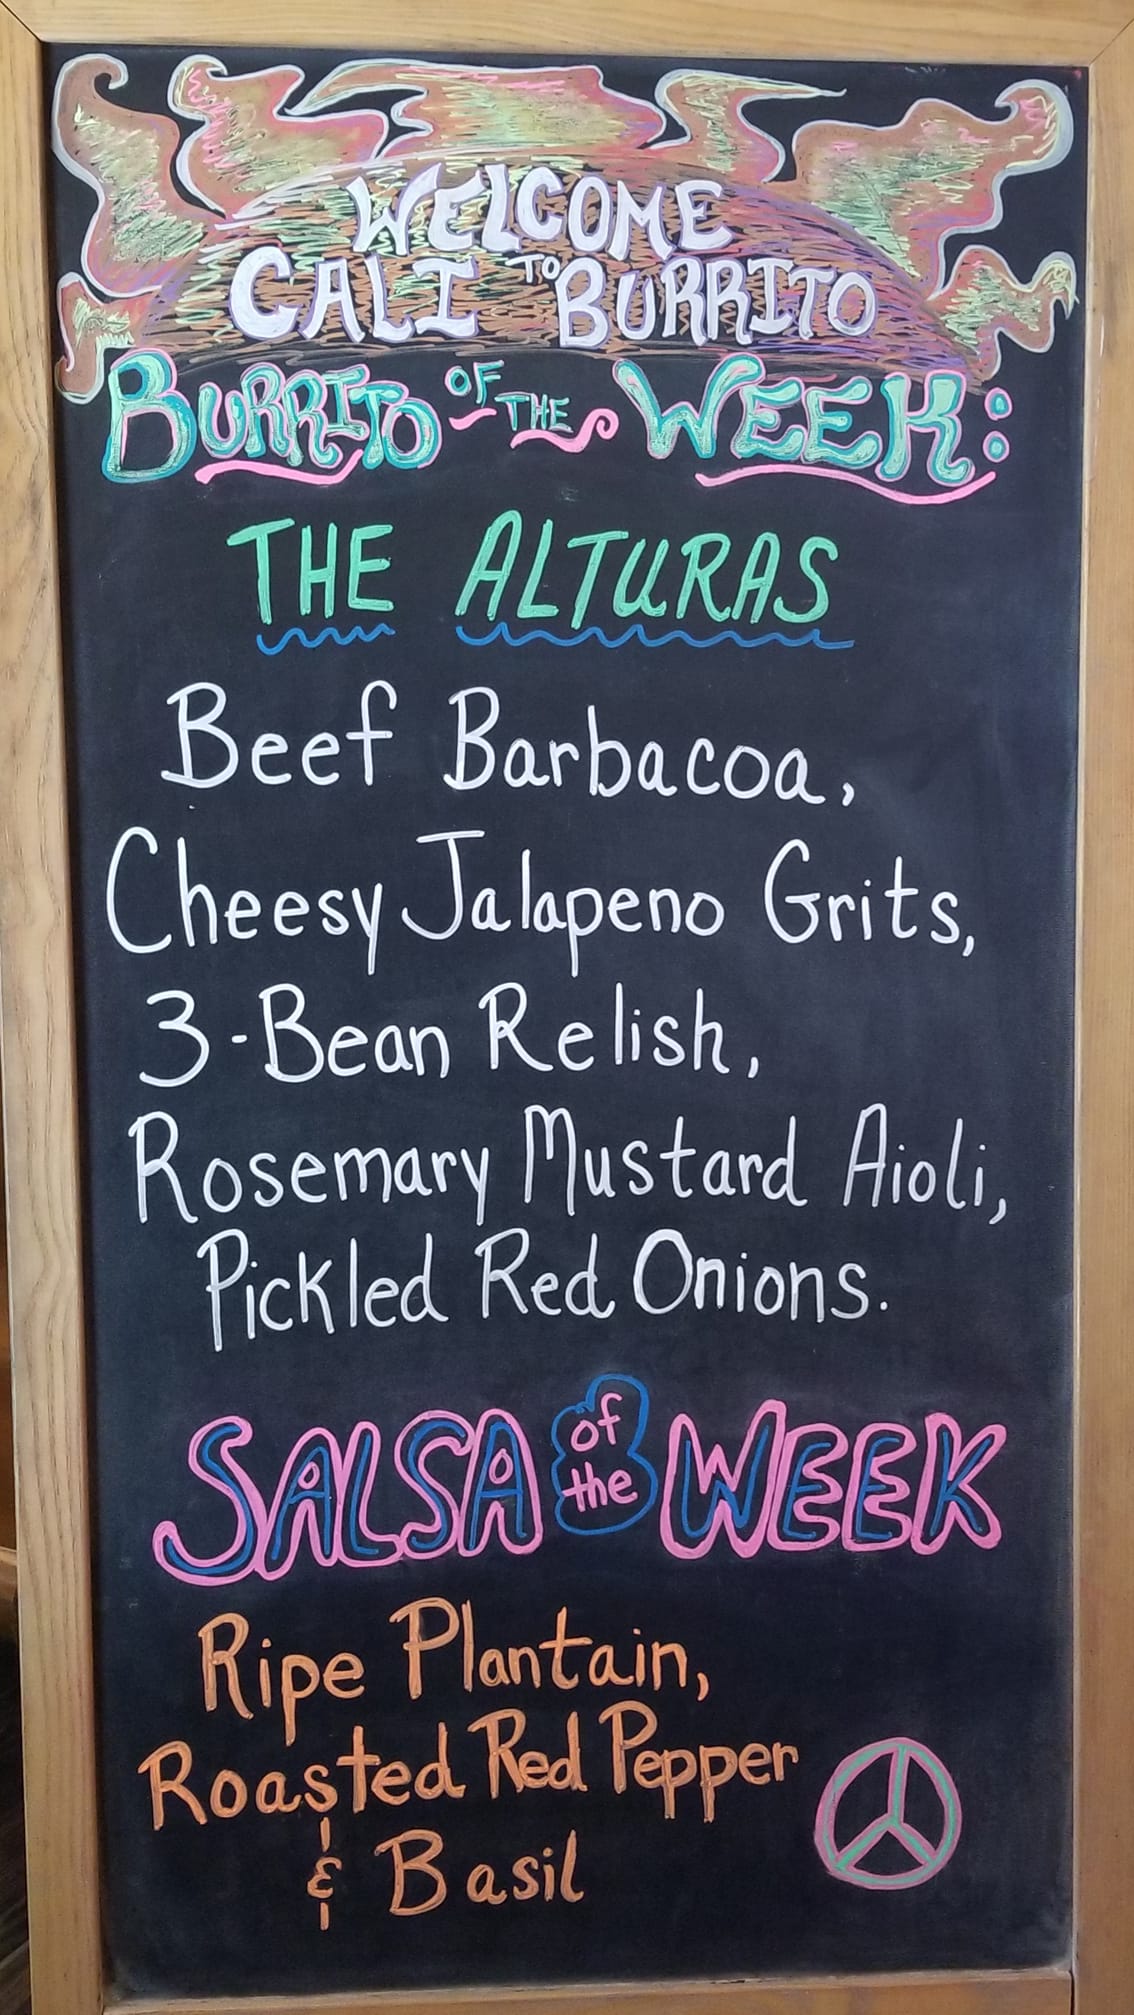 WELCOME
TO
CALI BURRITO
BURRITO OF THE WEEK:
THE ALTURAS
Beef Barbacoa,
Cheesy Jalapeno Grits,
3-Bean Relish,
Rosemary Mustard Aioli,
Pickled Red Onions.
SALSA of the WEEK
Ripe Plantain,
Roasted Red Pepper
& Basil